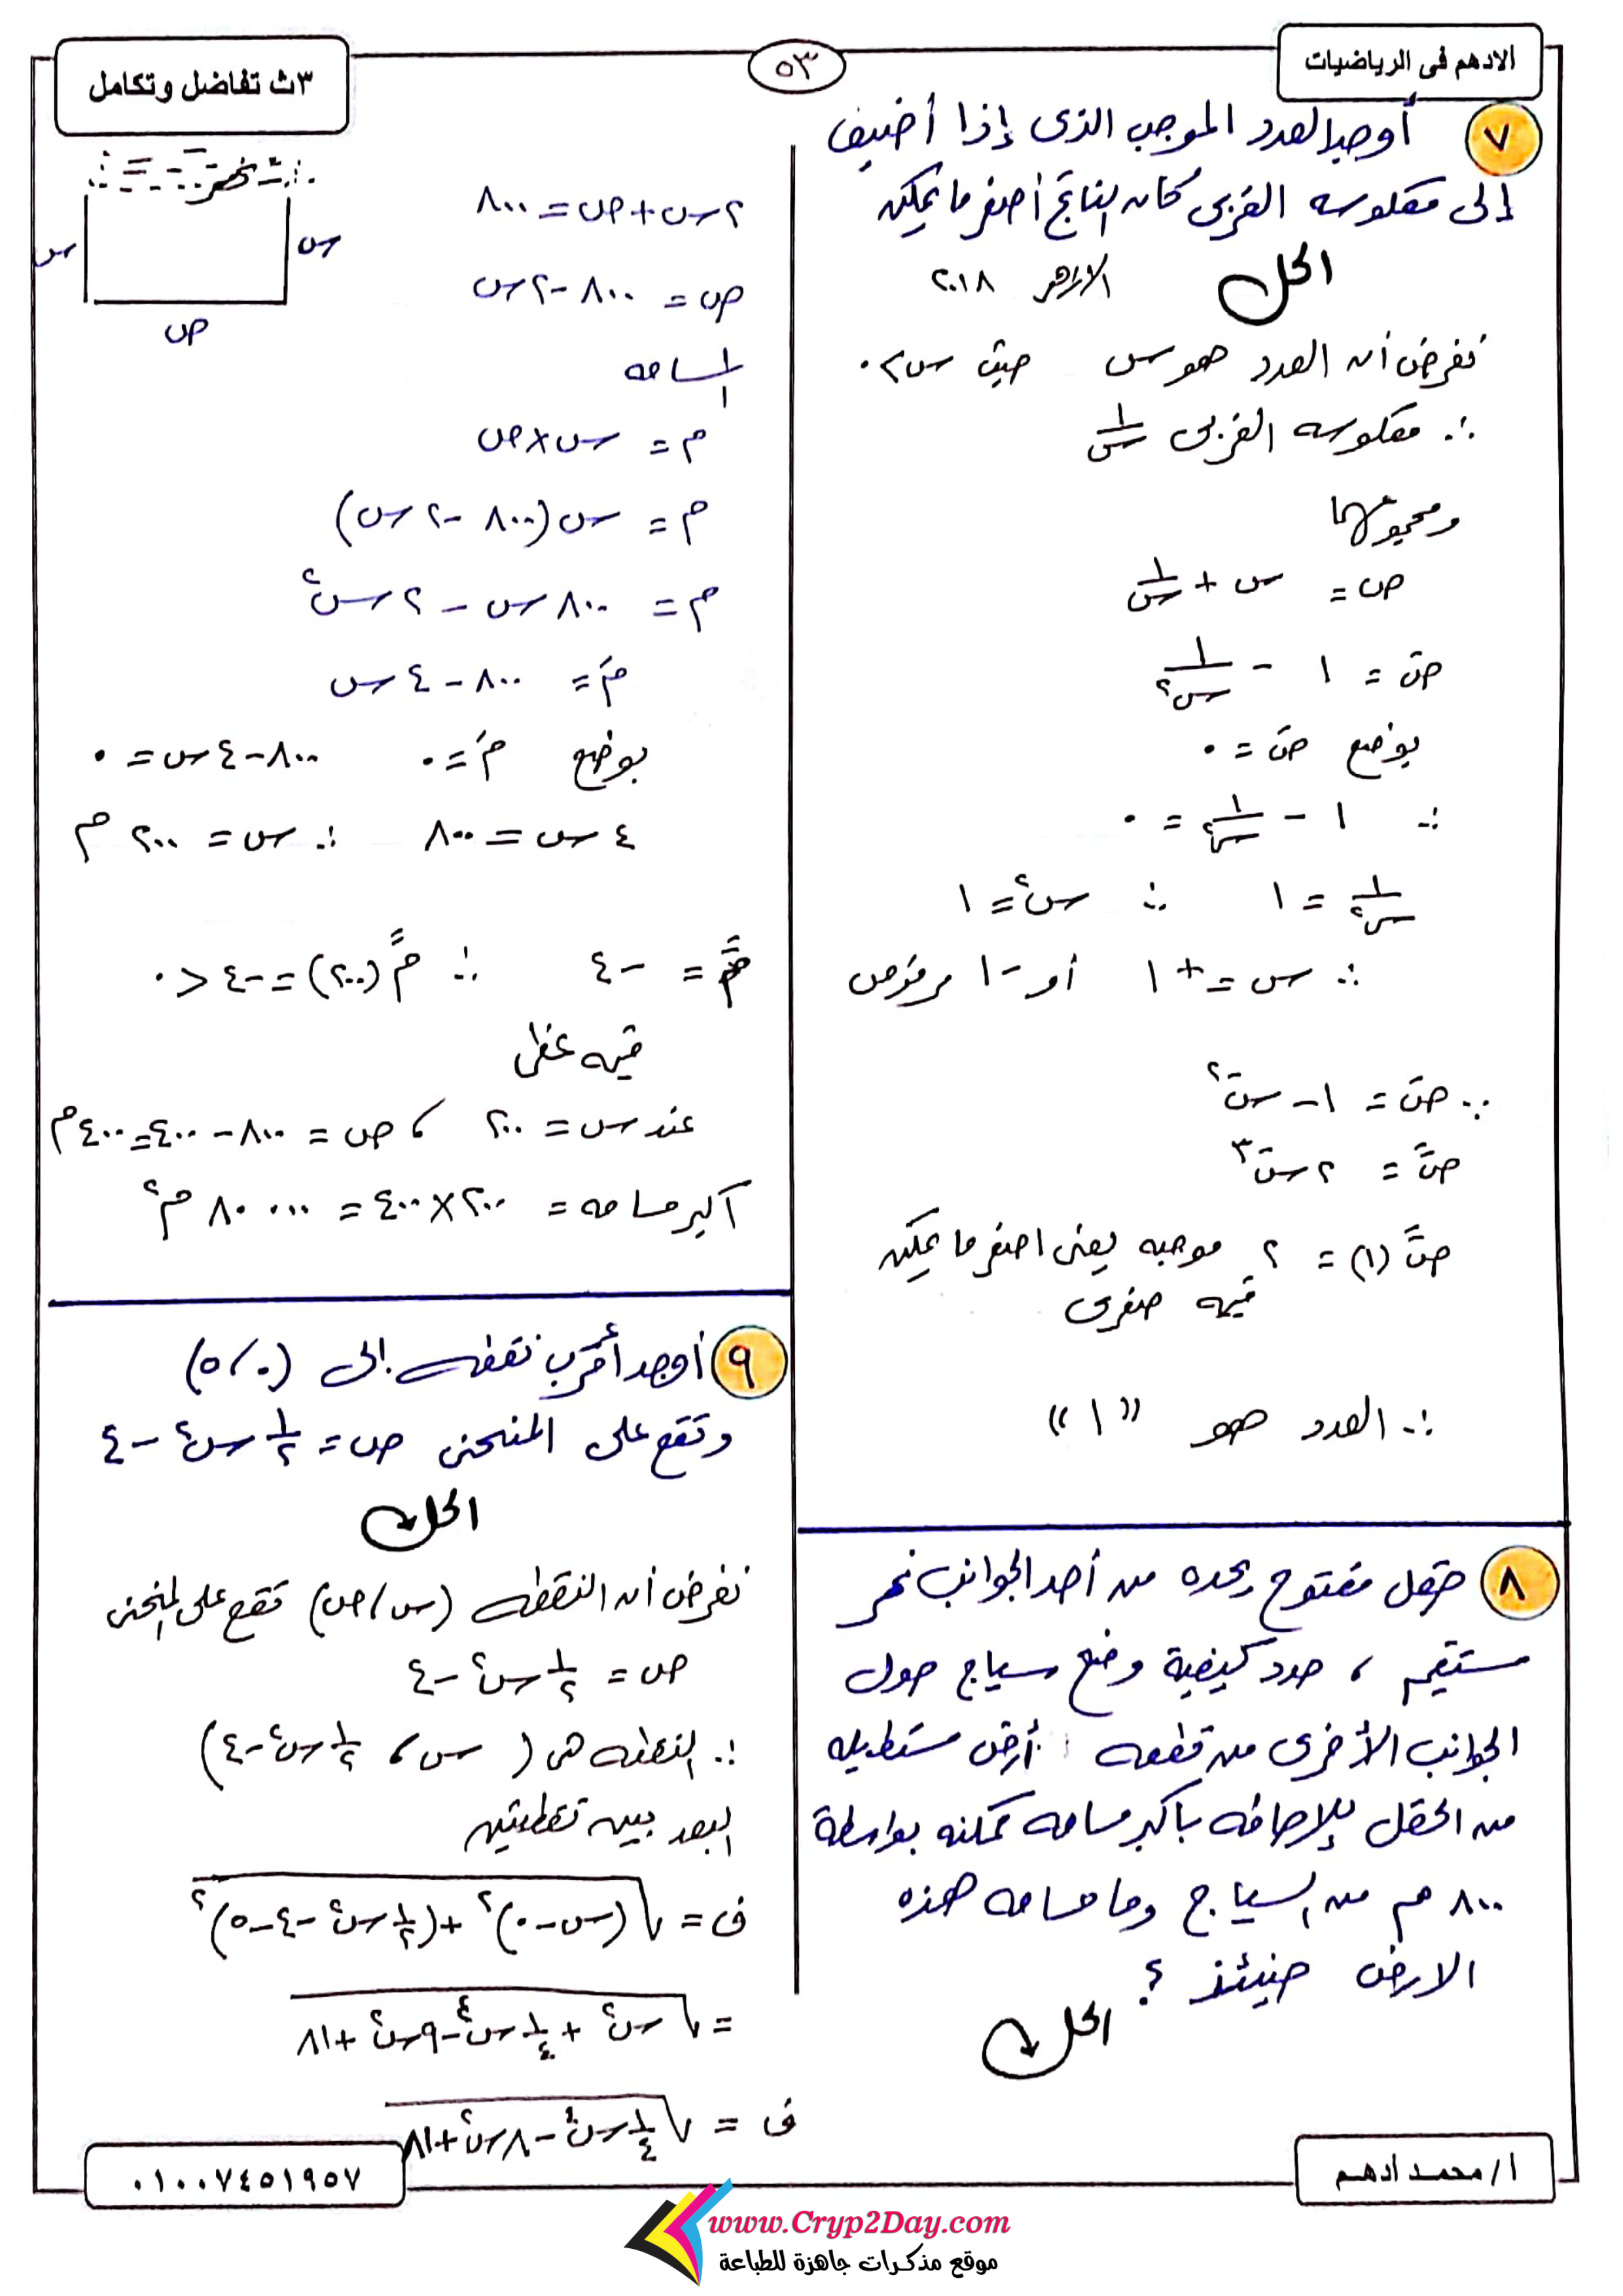 الادهم فى الرياضيات
٥٣
٣ث تفاضل وتكامل
٧ أوجد العدد الموجب الذى إذا أضيف
إلى معكوسه الضربى كان الناتج أصغر ما يمكن
الأزهر ٢٠١٨
الحل
نفرض أن العدد هو س حيث س > ٠
∴ معكوسه الضربى ١/س
ومجموعهما
ص = س + ١/س
صَ = ١ - ١/س٢
بوضع صَ = ٠
∴ ١ - ١/س٢ = ٠
١/س٢ = ١ ∴ س٢ = ١
∴ س = +١ أو -١ مرفوض
∵ صَ = ١ - س-٢
صً = ٢ س-٣
صً (١) = ٢ موجبه يعنى اصغر ما يمكن
قيمه صغرى
∴ العدد هو "١"
٨ حقل مفتوح يحده من أحد الجوانب نهر
مستقيم ، حدد كيفية وضع سياج حول
الجوانب الأخرى من قطعه أرض مستطيله
من الحقل للإحاطه بأكبر مساحه ممكنه بواسطة
٨٠٠ م من السياج وما مساحه هذه
الارض حينئذ ؟
الحل
نهر
س
س
ص
٢س + ص = ٨٠٠
ص = ٨٠٠ - ٢س
المساحه
م = س × ص
م = س(٨٠٠ - ٢س)
م = ٨٠٠س - ٢س٢
مَ = ٨٠٠ - ٤س
بوضع مَ = ٠ ٨٠٠ - ٤س = ٠
٤س = ٨٠٠ ∴ س = ٢٠٠ م
مً = -٤ ∴ مً(٢٠٠) = -٤ < ٠
قيمه عظمى
عند س = ٢٠٠ ، ص = ٨٠٠ - ٤٠٠ = ٤٠٠ م
أكبر مساحه = ٢٠٠ × ٤٠٠ = ٨٠٠٠٠ م٢
٩ أوجد أقرب نقطه إلى (٠، ٥)
وتقع على المنحنى ص = ١/٢ س٢ - ٤
الحل
نفرض أن النقطه (س، ص) تقع على المنحنى
ص = ١/٢ س٢ - ٤
∴ النقطه هى (س، ١/٢ س٢ - ٤)
البعد بين نقطتين
ف = √(س - ٠)٢ + (١/٢ س٢ - ٤ - ٥)٢
= √س٢ + ١/٤ س٤ - ٩س٢ + ٨١
ف = √١/٤ س٤ - ٨س٢ + ٨١
أ/ محمد أدهم
٠١٠٠٧٤٥١٩٥٧
www.Cryp2Day.com
موقع مذكرات جاهزة للطباعة